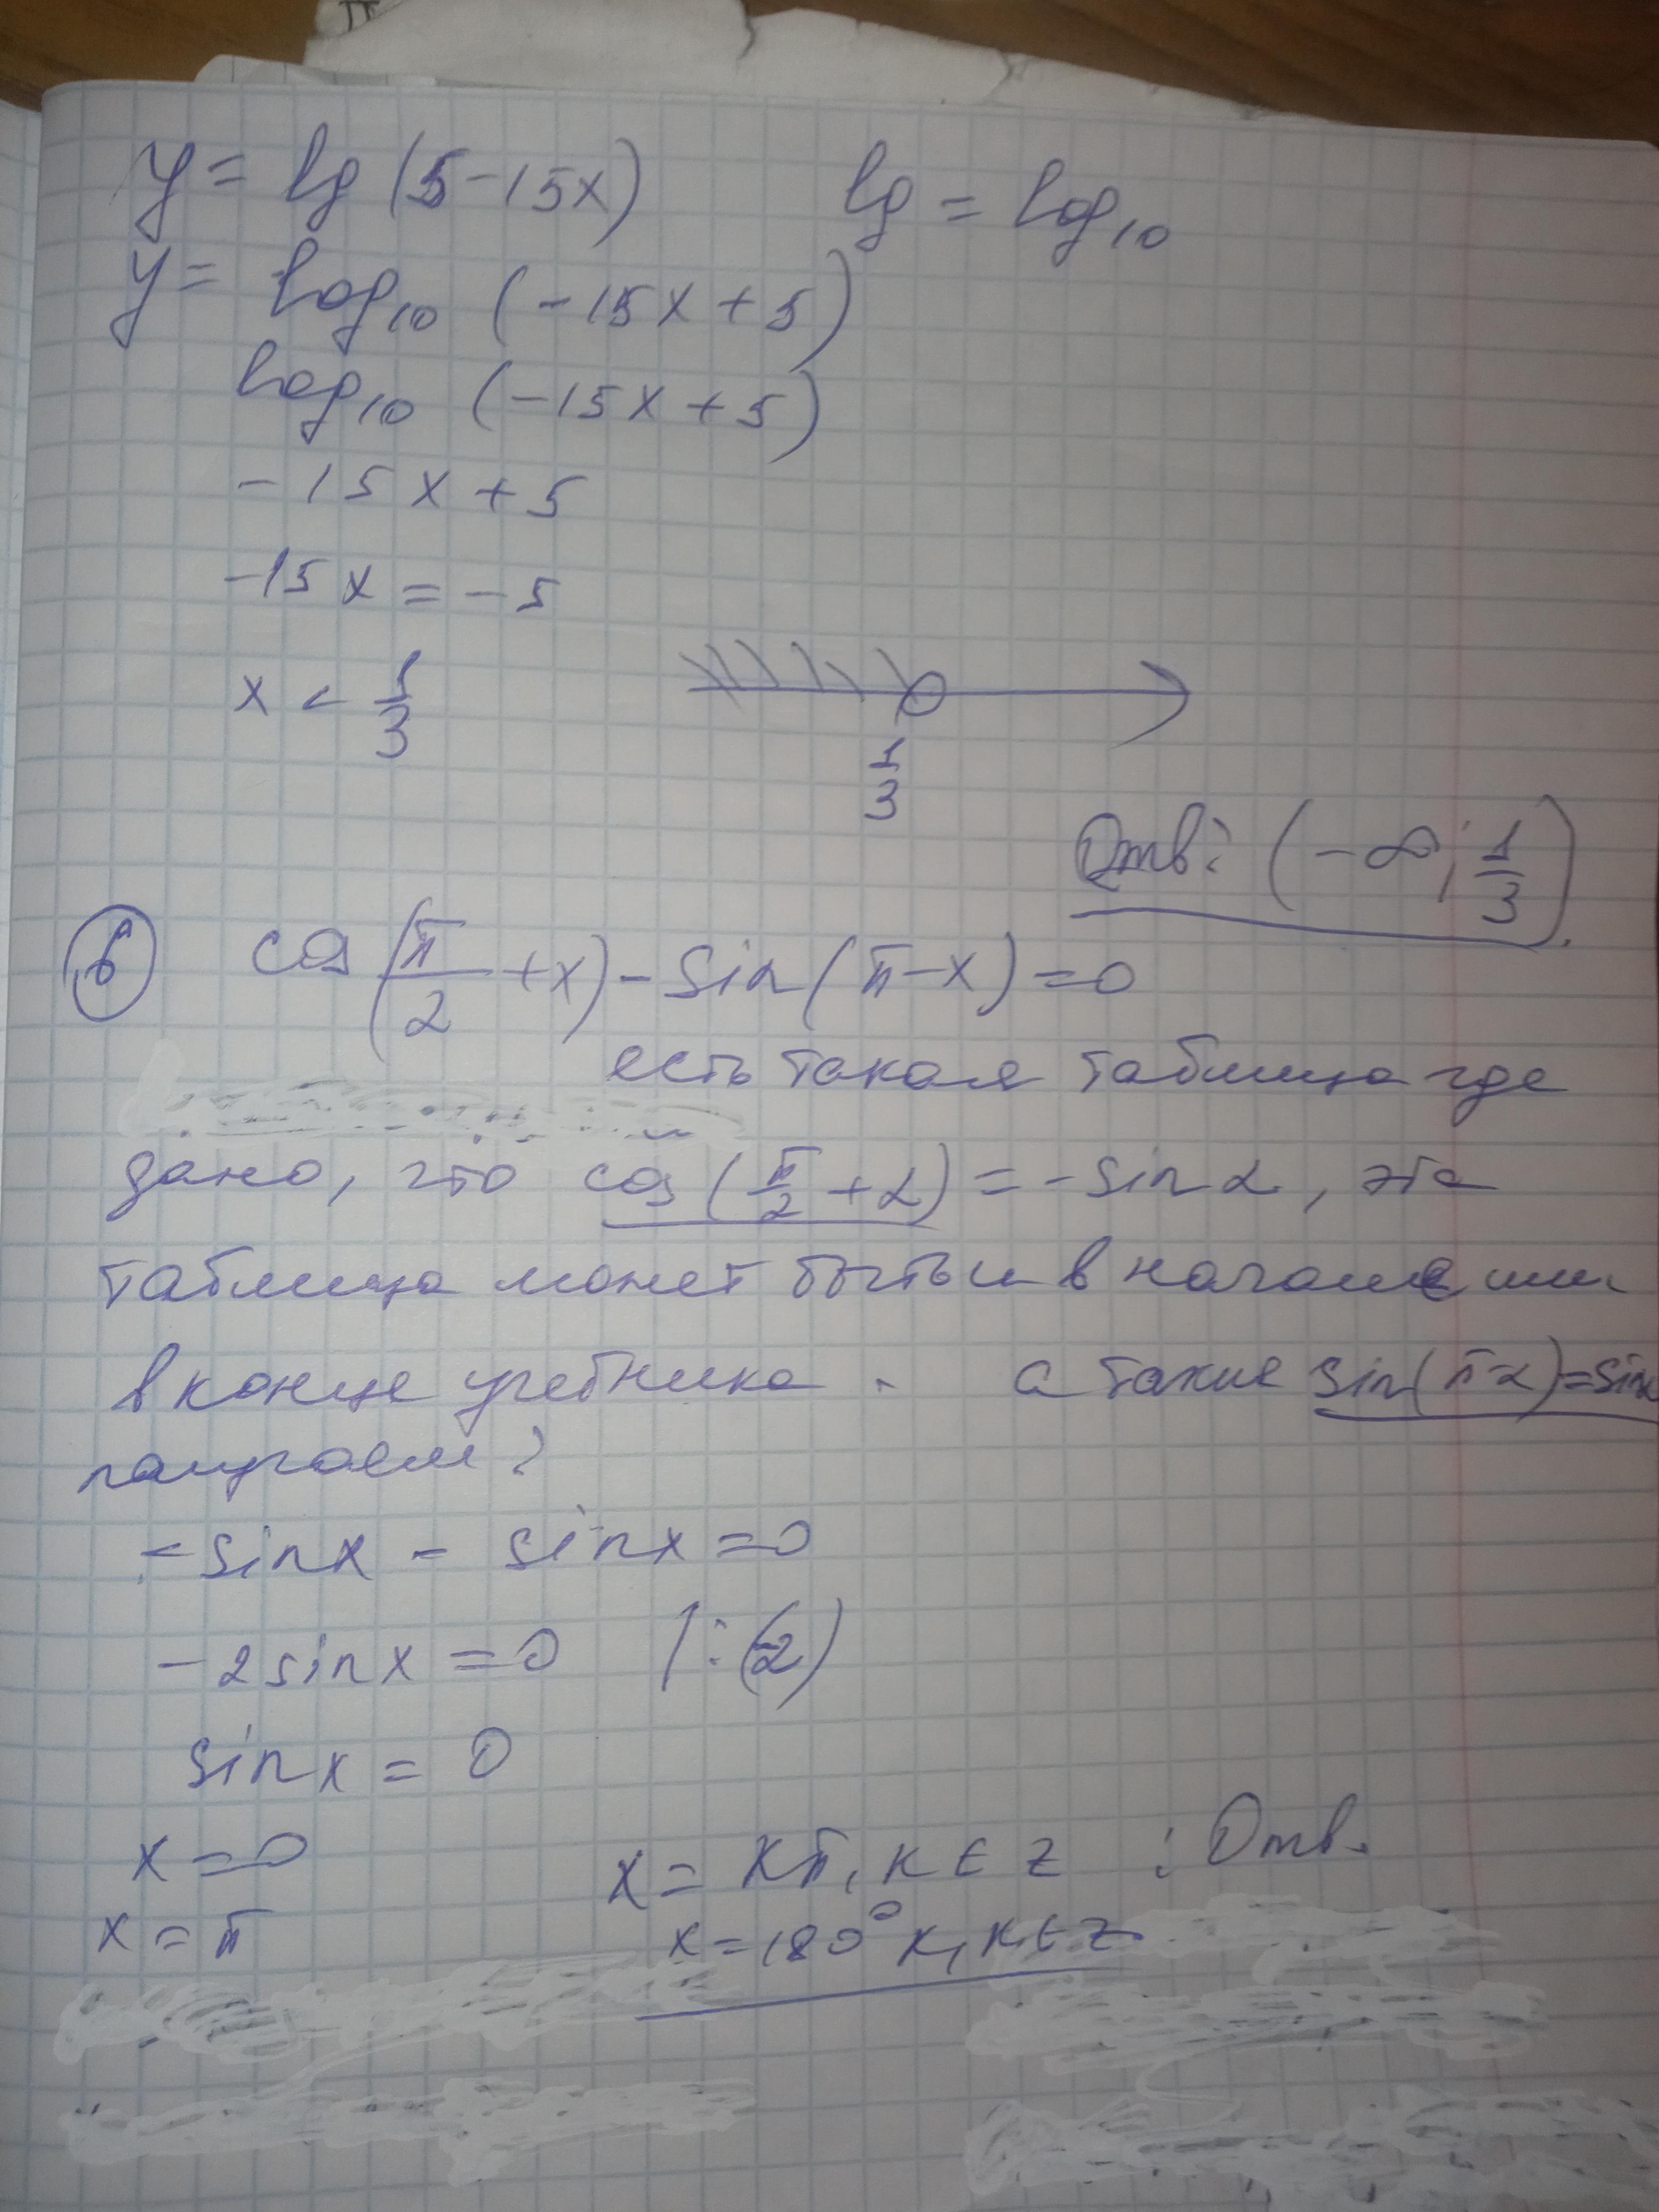 y = lg (5-15x) lg = log₁₀
y = log₁₀ (-15x+5)
log₁₀ (-15x+5)
-15x+5
-15x = -5
x < 1/3
1/3
Отв: (-∞; 1/3).
6 cos(π/2 + x) - sin(π-x) = 0
есть такая таблица где
дано, что cos(π/2 + α) = -sin α, эта
таблица может быть и в начале или
в конце учебника. а также sin(π-α)=sinα
получаем:
-sinx - sinx = 0
-2sinx = 0 |:(-2)
sinx = 0
x = 0 x = Kπ, K ∈ Z : Отв.
x = π x = 180° K, K ∈ Z